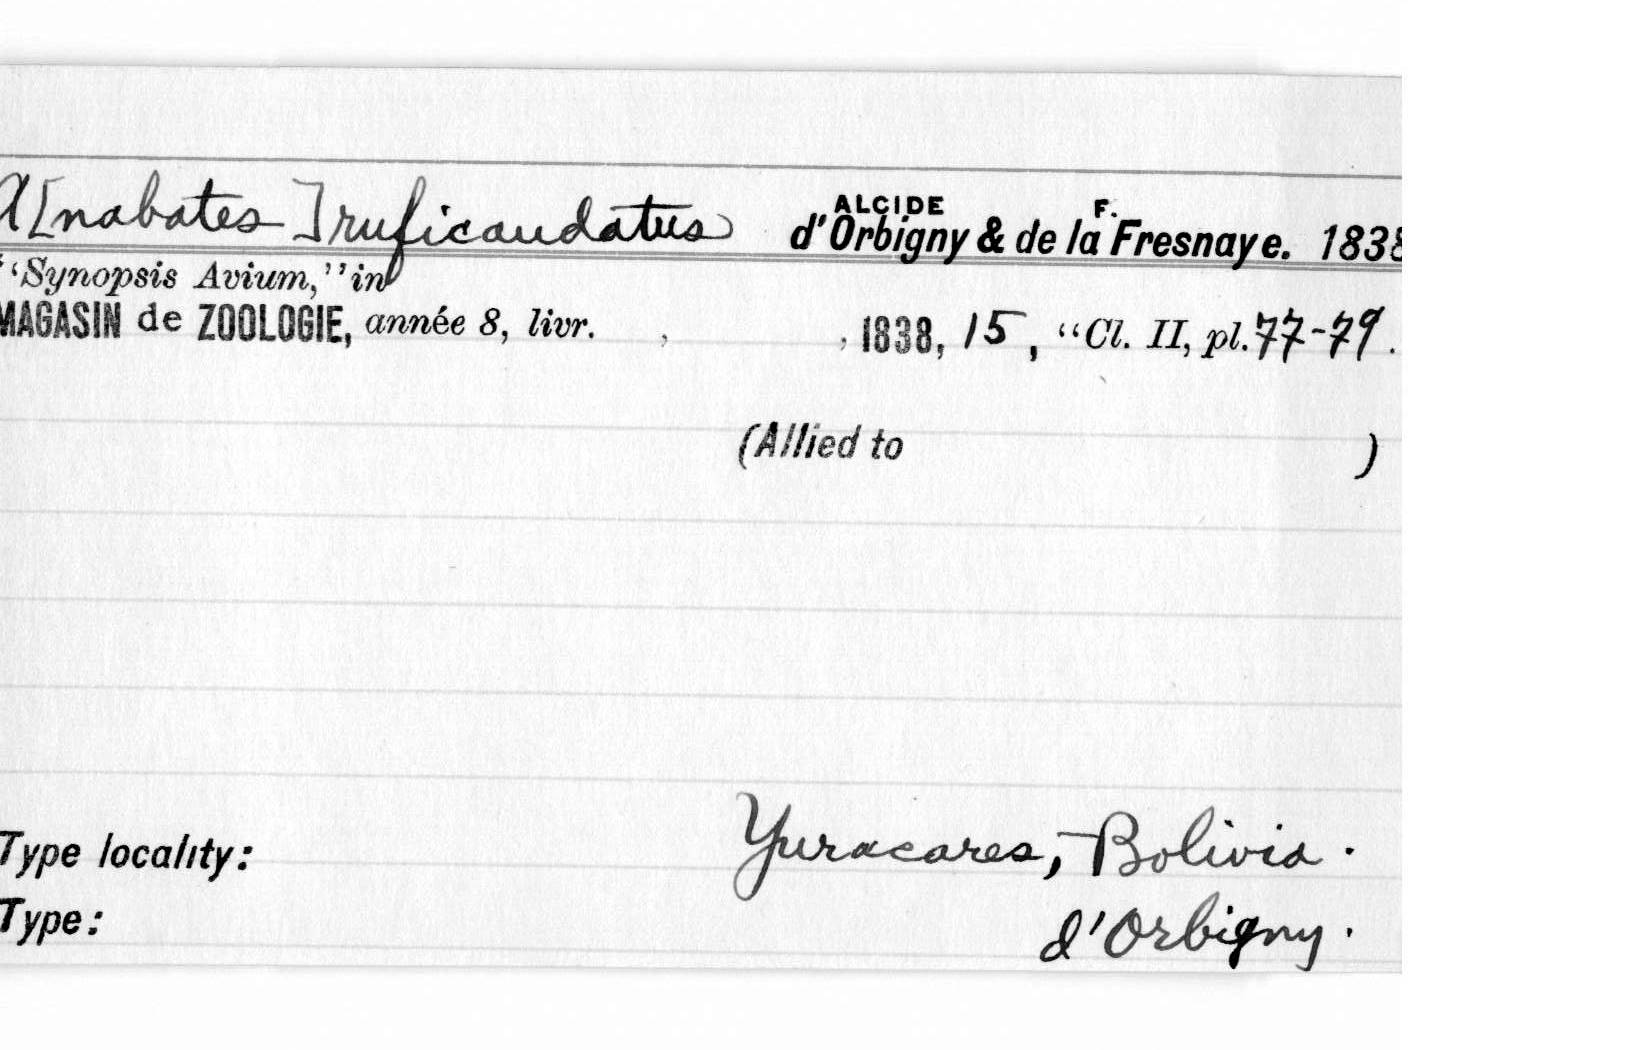 A[nabates ] ruficaudatus ALCIDE d'Orbigny & de la F. Fresnaye. 1838
"Synopsis Avium," in
MAGASIN de ZOOLOGIE, année 8, livr. , , 1838, 15, "Cl. II, pl. 77-79.
(Allied to )
Type locality: Yuracares, Bolivia.
Type: d'Orbigny.